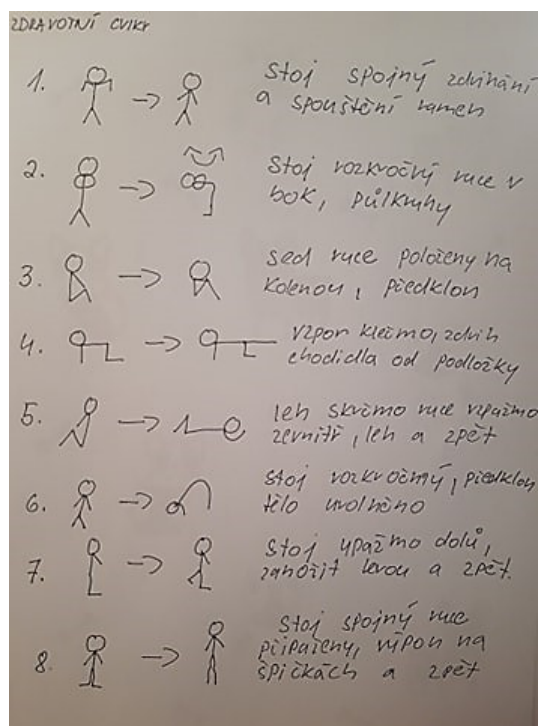 ZDRAVOTNÍ CVIKY
1. Stoj spojný zdvihání
a spouštění ramen
2. Stoj rozkročný ruce v
bok, půlkruhy
3. sed ruce položeny na
kolenou, předklon
4. vzpor klečmo, zdvih
chodidla od podložky
5. leh skrčmo ruce vzpažmo
zevnitř, leh a zpět
6. stoj rozkročný, předklon
tělo uvolněno
7. Stoj upažmo dolů,
zanožit levou a zpět.
8. Stoj spojný ruce
připaženy, výpon na
špičkách a zpět